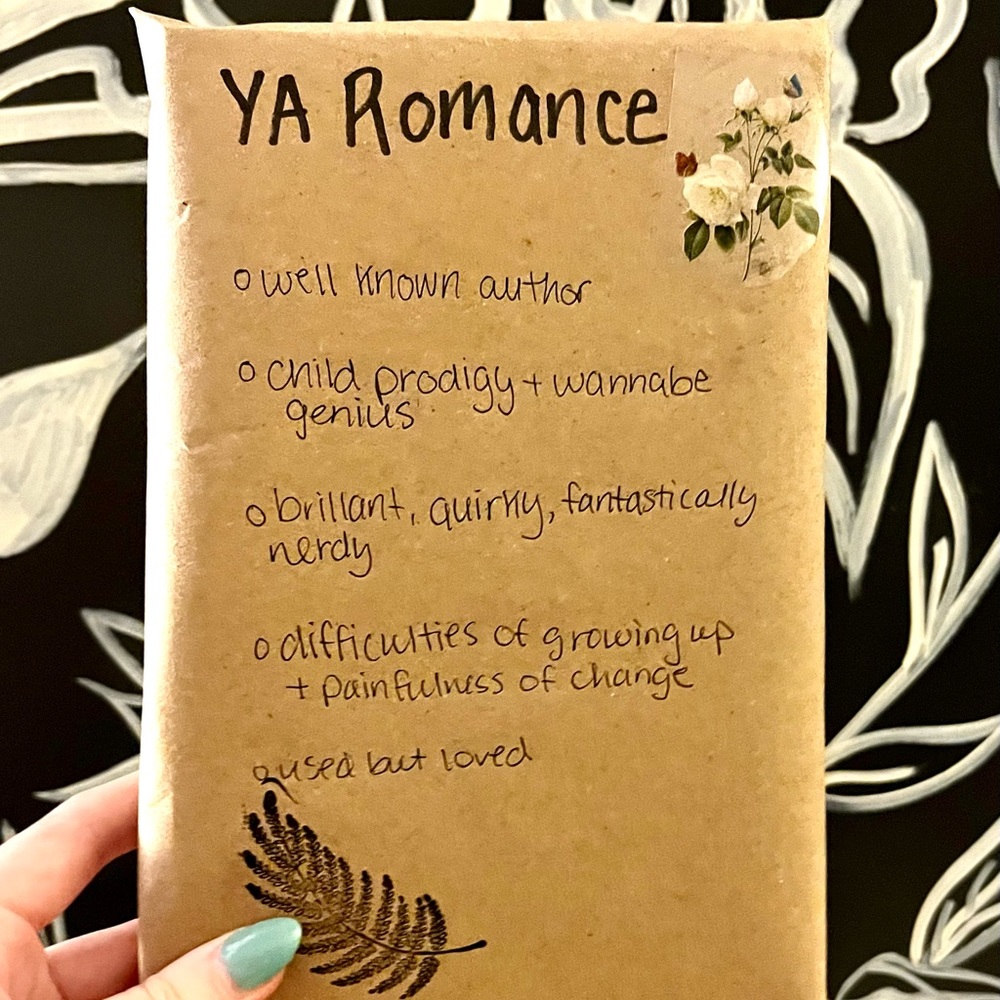 YA Romance
o well known author
o child prodigy + wannabe
genius
o brillant, quirky, fantastically
nerdy
o difficulties of growing up
+ painfulness of change
o used but loved